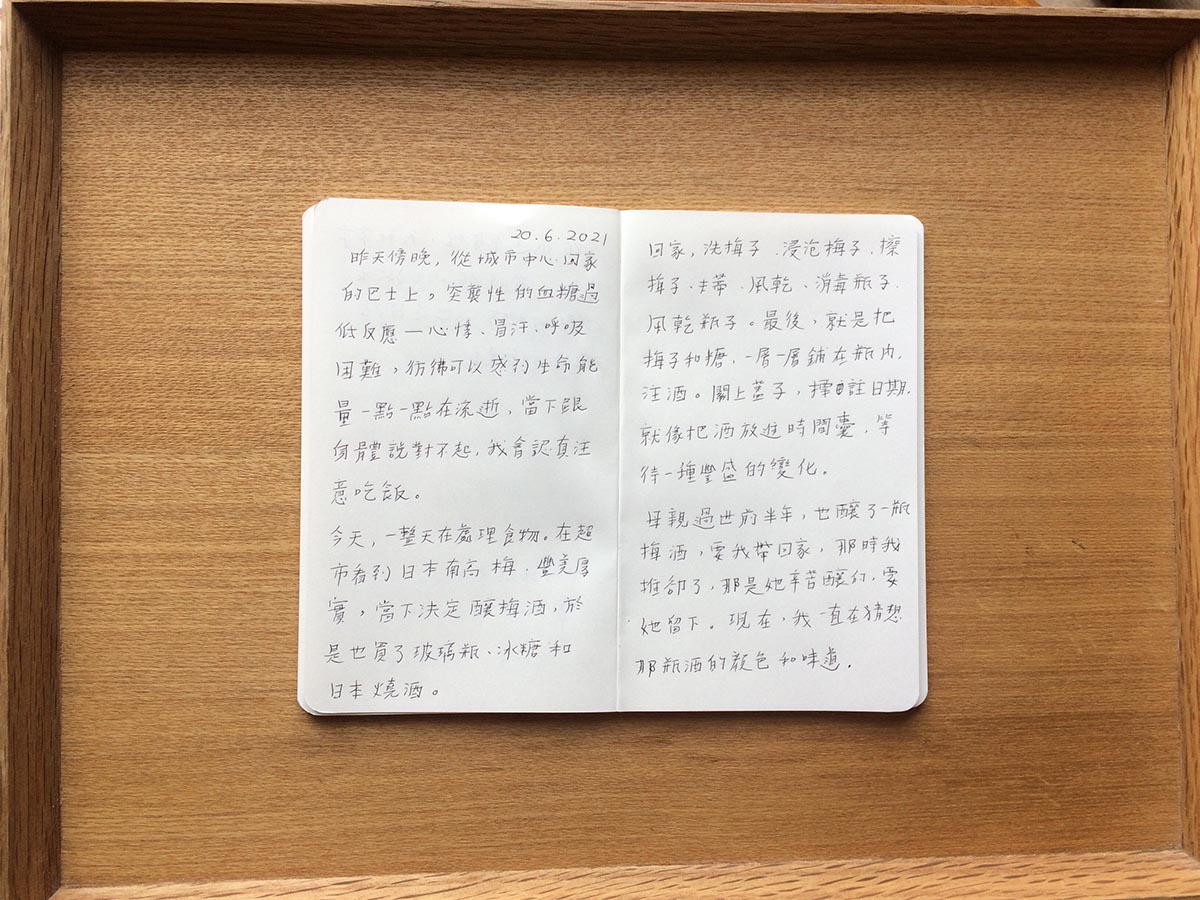 20.6.2021
昨天傍晚，從城市中心回家
的巴士上。突襲性的血糖過
低反應—心悸、冒汗、呼吸
困難，彷彿可以感到生命能
量一點一點在流逝，當下跟
身體說對不起，我會認真注
意吃飯。
今天，一整天在處理食物。在超
市看到日本南高梅，豐美厚
實，當下決定釀梅酒，於
是也買了玻璃瓶、冰糖和
日本燒酒。
回家，洗梅子、浸泡梅子、擦
梅子、去蒂、風乾、消毒瓶子、
風乾瓶子。最後，就是把
梅子和糖，一層一層鋪在瓶內，
注酒。關上蓋子，註日期，
就像把酒放進時間囊，等
待一種豐盛的變化。
母親過世前半年，也釀了一瓶
梅酒，要我帶回家，那時我
推卻了，那是她辛苦釀的，要
她留下。現在，我一直在猜想
那瓶酒的顏色和味道。